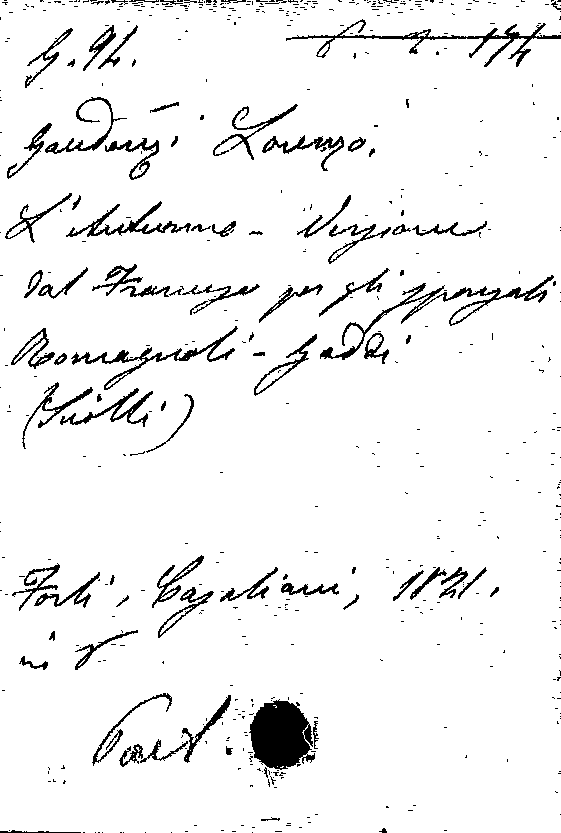 G. 94. 8. 2. 174
Gaudenzi Lorenzo.
L'Autunno - Versione
dal Francese per gli sponsali
Romagnoli - Gaddi
(Sciolti)
Forlì, Casaliani, 1821.
in 8
Poet.